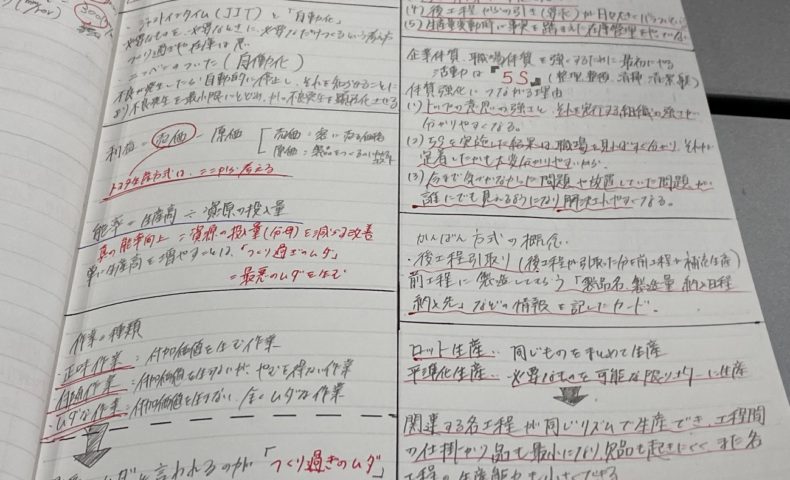 ジャストインタイム(JIT)と「自働化」
必要なものを、必要なときに、必要なだけつくるという考え
つくり過ぎや在庫は悪
ニンベンのついた(自働化)
不良が発生したら自動的に停止し、それを知らせることに
より不良発生を最小限にとどめ、かつ不良発生を顕在化させる
利益=売価-原価
売価:客に売る価格
原価:製品をつくるのに
トヨタ生産方式は、ここから考える
能率=生産高÷資源の投入量
真の能率向上=資源の投入量(分母)を減らす改善
単に生産高を増やすことは、「つくり過ぎのムダ」
=最悪のムダを生む
作業の種類
・正味作業:付加価値を生む作業
・付随作業:付加価値を生まないが、やむを得ない作業
・ムダな作業:付加価値を生まない、全くムダな作業
ムダと言われるのが「つくり過ぎのムダ」
(4)後工程からの引き
(5)生産量変動時に事実を踏まえた在庫管理を
企業体質、職場体質を強くするために最初にやる
活動は『5S』(整理、整頓、清掃、清潔、躾)
体質強化につながる理由
(1)トップの意思の強さと、それを実行する組織の強さが
分かりやすくなる。
(2)5Sを実施した結果は職場を見ればすぐ分かり、それが
定着したかも大変分かりやすいから。
(3)今まで気づかなかった問題や放置していた問題が、
誰にでも見れるようになり解決しやすくなる。
かんばん方式の概念
・後工程引取り(後工程が引取った分を前工程が補充生産)
前工程に製造してもらう「製品名、製造量、納入日程
納入先」などの情報を記したカード。
ロット生産‥同じものをまとめて生産
平準化生産‥必要なものを可能な限り に生産
関連する各工程が同じリズムで生産でき、工程間
の仕掛かり品も最小になり、欠品も起きにくく、また各
工程の生産能力も小さくできる